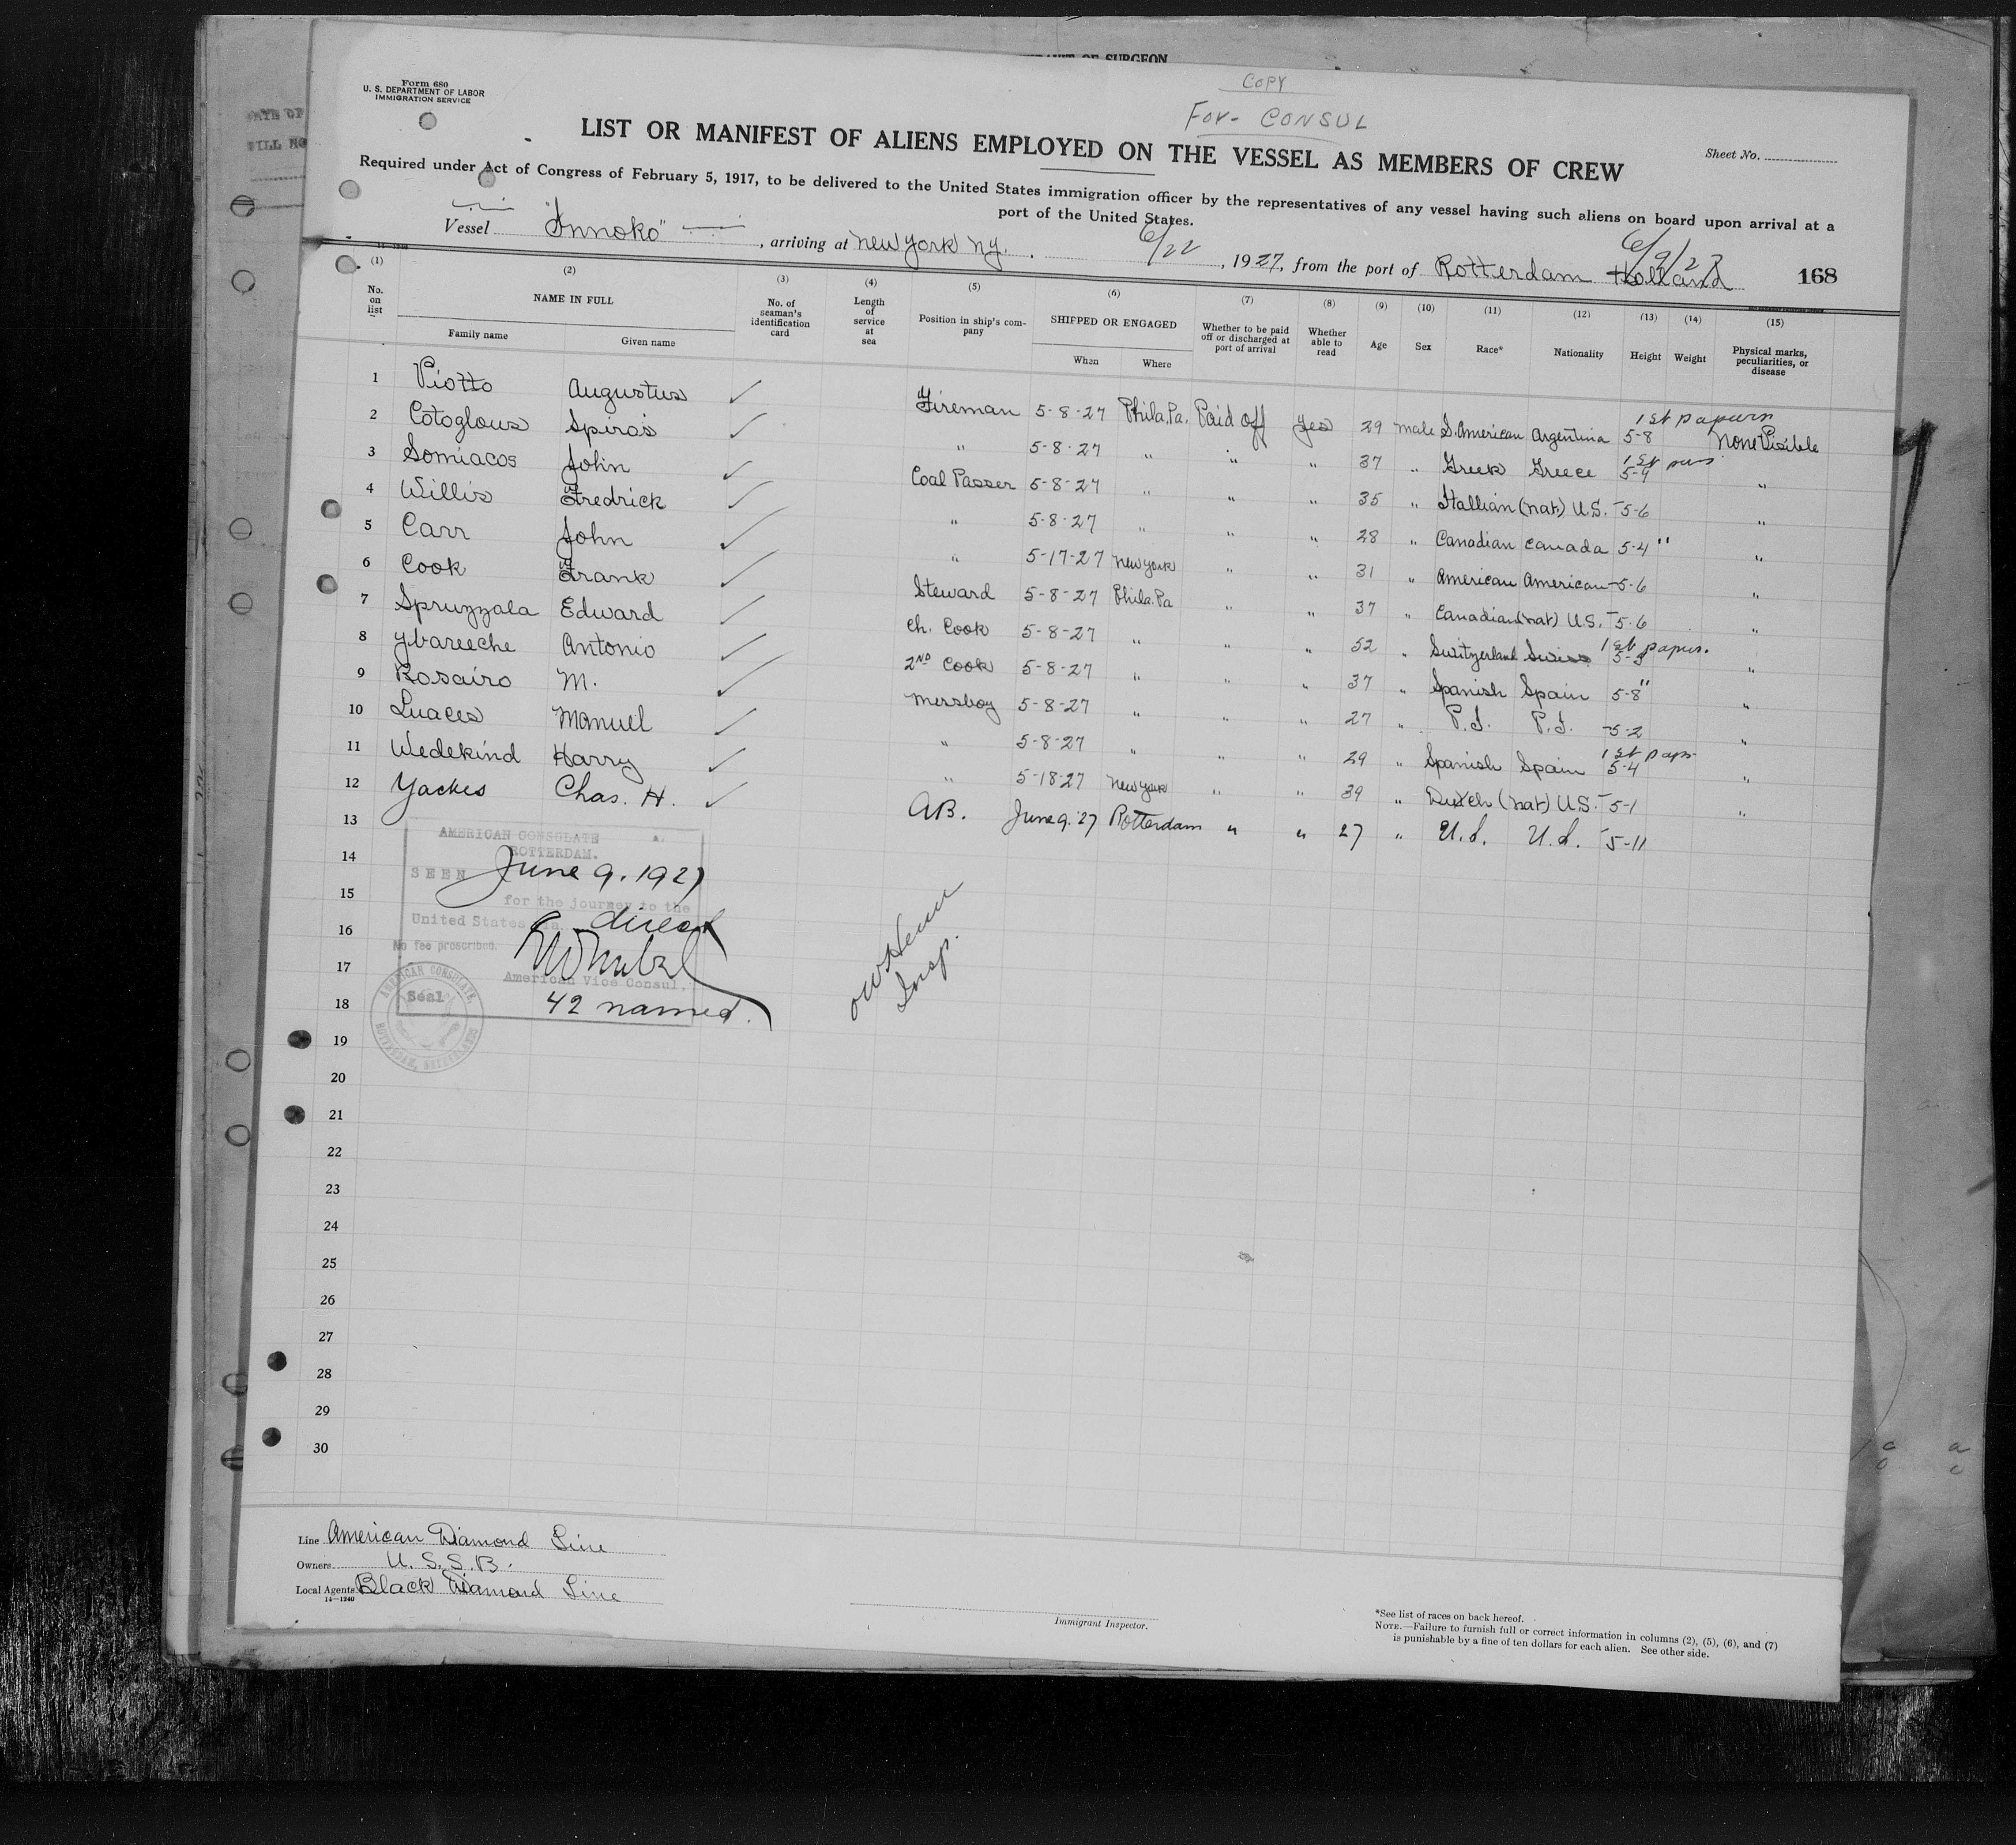 OF SURGEON
COPY
For- CONSUL
Form 680
U. S. DEPARTMENT OF LABOR
IMMIGRATION SERVICE
LIST OR MANIFEST OF ALIENS EMPLOYED ON THE VESSEL AS MEMBERS OF CREW
Sheet No.
Required under Act of Congress of February 5, 1917, to be delivered to the United States immigration officer by the representatives of any vessel having such aliens on board upon arrival at a
port of the United States.
Vessel "Innoko", arriving at New York N.Y. 6/22, 1927, from the port of Rotterdam Holland 6/9/27 168
(1) (2) (3) (4) (5) (6) (7) (8) (9) (10) (11) (12) (13) (14) (15)
No. on list NAME IN FULL Family name Given name No. of seaman's identification card Length of service at sea Position in ship's company SHIPPED OR ENGAGED When Where Whether to be paid off or discharged at port of arrival Whether able to read Age Sex Race* Nationality Height Weight Physical marks, peculiarities, or disease
1 Piotto Augustus ✓ Fireman 5-8-27 Phila.Pa. Paid off Yes 29 male S.American Argentina 1st papers 5-8 None Visible
2 Cotoglous Spiros ✓ " 5-8-27 " " " 37 " Greek Greece 1st 5-9 "
3 Somiacos John ✓ Coal Passer 5-8-27 " " " 35 " Itallian (nat) U.S. 5-6 "
4 Willis Fredrick ✓ " 5-8-27 " " " 28 " Canadian Canada 5-4 " "
5 Carr John ✓ " 5-17-27 New York " " 31 " American American 5-6 "
6 Cook Frank ✓ Steward 5-8-27 Phila.Pa " " 37 " Canadian (nat) U.S. 5-6 "
7 Spruzzala Edward ✓ Ch. Cook 5-8-27 " " " 52 " Switzerland Swiss 1st papers. 5-5 "
8 Ybareeche Antonio ✓ 2ND Cook 5-8-27 " " " 37 " Spanish Spain 5-8 " "
9 Rosairo M. ✓ Messboy 5-8-27 " " " 27 " P.I. P.I. 5-2 "
10 Luaces Manuel ✓ " 5-8-27 " " " 29 " Spanish Spain 1st paps 5-4 "
11 Wedekind Harry ✓ " 5-18-27 New York " " 39 " Dutch (nat) U.S. 5-1 "
12 Yackes Chas. H. ✓ A.B. June 9.'27 Rotterdam " " 27 " U.S. U.S. 5-11
13
14
15
16
17
18
19
20
21
22
23
24
25
26
27
28
29
30
AMERICAN CONSULATE
ROTTERDAM.
SEEN June 9. 1927
for the journey to the
United States via direct
No fee prescribed.
American Vice Consul,
Seal
42 named.
AMERICAN CONSULATE, ROTTERDAM, NETHERLANDS
Insp.
Line American Diamond Line
Owners U.S.S.B.
Local Agents Black Diamond Line
14—1240
Immigrant Inspector.
*See list of races on back hereof.
NOTE.—Failure to furnish full or correct information in columns (2), (5), (6), and (7)
is punishable by a fine of ten dollars for each alien. See other side.